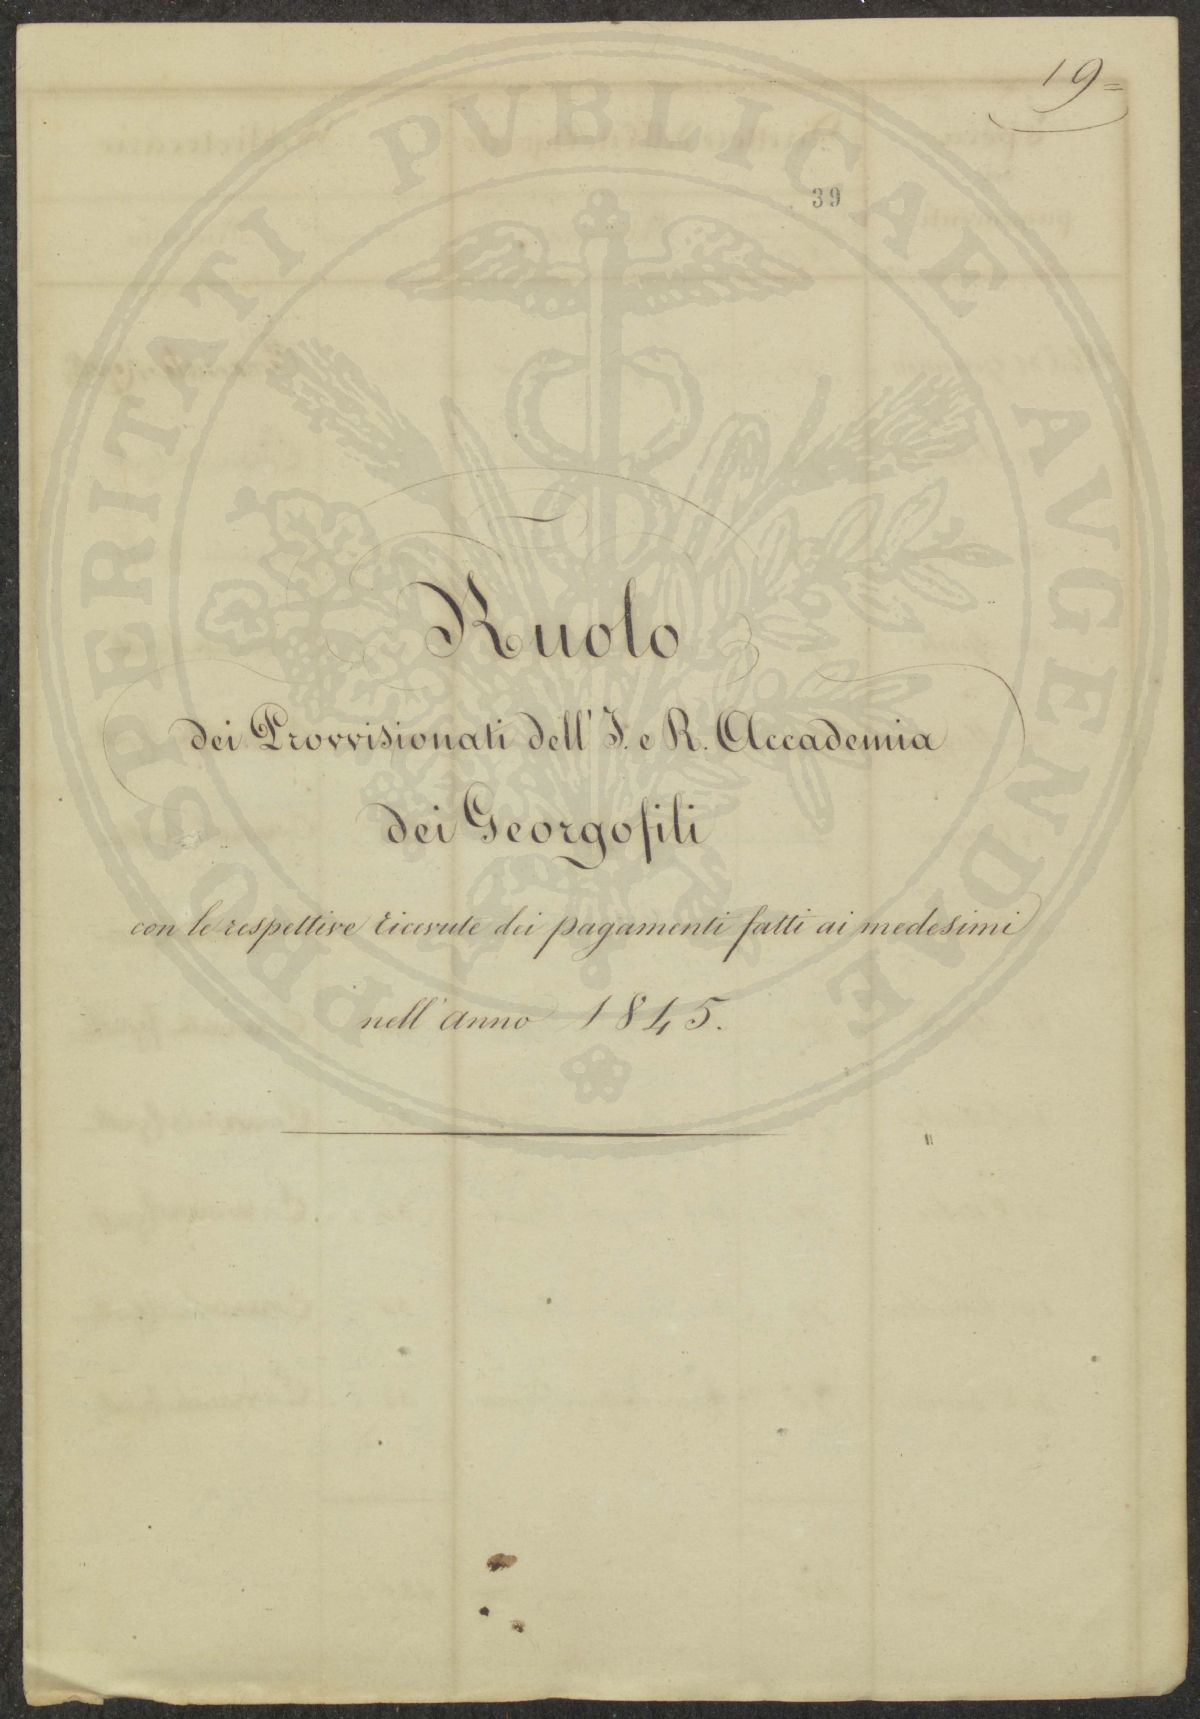 19=
39
Ruolo
dei Provvisionati dell' I. e R. Accademia
dei Georgofili
con le respettive ricevute dei pagamenti fatti ai medesimi
nell' anno 1845.
PROSPERITATI PVBLICAE AVGENDAE